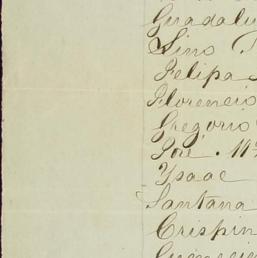 Guadalu
Lino
Felipa
Florencio
Gregorio
José . M
Ysaac
Santana
Crispin